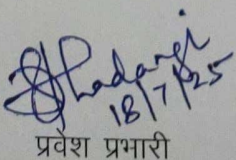 18/7/25
प्रवेश प्रभारी